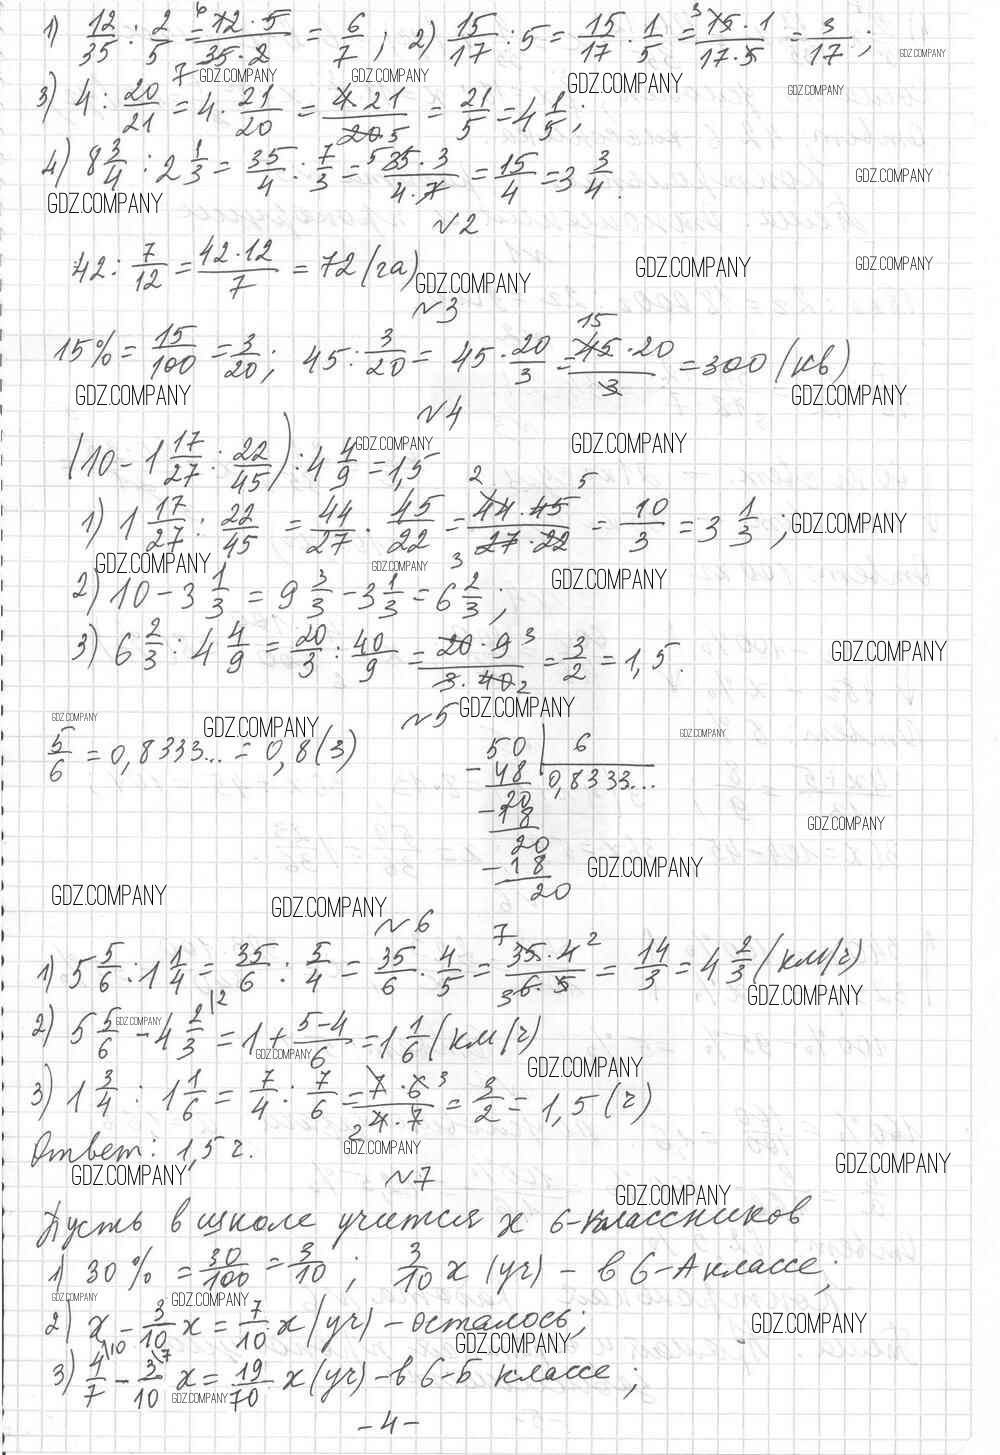 1) 12/35 : 2/5 = 12·5/35·2 = 6/7; 2) 15/17 : 5 = 15/17 · 1/5 = 15·1/17·5 = 3/17;
3) 4 : 20/21 = 4 · 21/20 = 4·21/20 5 = 21/5 = 4 1/5;
4) 8 3/4 : 2 1/3 = 35/4 : 7/3 = 35·3/4·7 = 15/4 = 3 3/4.
№2
42 : 7/12 = 42·12/7 = 72 (га)
№3
15% = 15/100 = 3/20; 45 : 3/20 = 45 · 20/3 = 45·20/3 = 300 (кв)
№4
(10 - 1 17/27 : 22/45) : 4 4/9 = 1,5
1) 1 17/27 : 22/45 = 44/27 · 45/22 = 44·45/27·22 = 10/3 = 3 1/3;
2) 10 - 3 1/3 = 9 3/3 - 3 1/3 = 6 2/3;
3) 6 2/3 : 4 4/9 = 20/3 : 40/9 = 20·9/3·40 = 3/2 = 1,5.
№5
5/6 = 0,8333... = 0,8(3)
50 | 6
- 48 0,8333...
20
- 18
20
- 18
20
№6
1) 5 5/6 : 1 1/4 = 35/6 : 5/4 = 35/6 · 4/5 = 35·4/6·5 = 14/3 = 4 2/3 (км/ч)
2) 5 5/6 - 4 2/3 = 1 + 5-4/6 = 1 1/6 (км/ч)
3) 1 3/4 : 1 1/6 = 7/4 : 7/6 = 7·6/4·7 = 3/2 = 1,5 (ч)
Ответ: 1,5 ч.
№7
Пусть в школе учится x 6-классников
1) 30% = 30/100 = 3/10; 3/10 x (уч) - в 6-А классе;
2) x - 3/10 x = 7/10 x (уч) - осталось;
3) 4/7 - 3/10 x = 19/70 x (уч) - в 6-Б классе;
- 4 -
GDZ.COMPANY